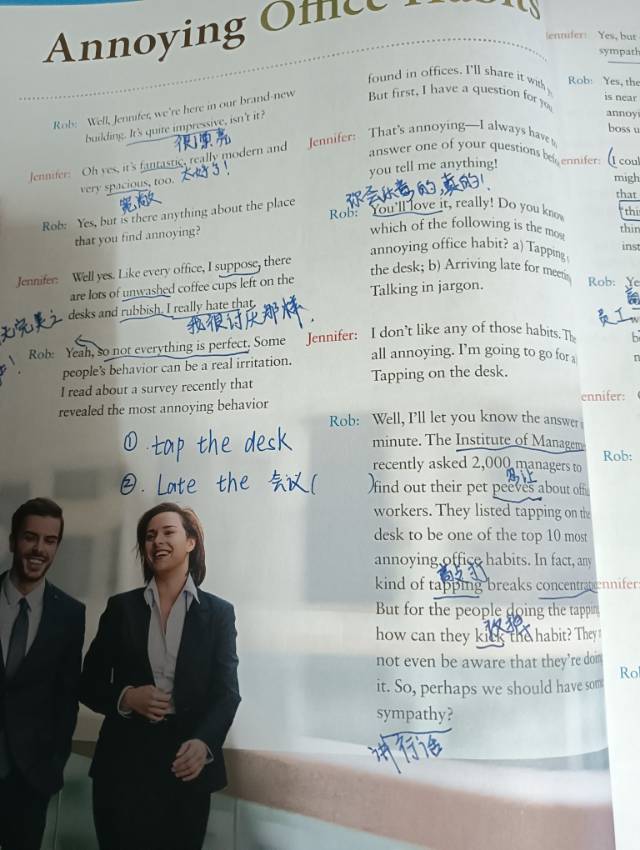 Annoying Office Habits
Rob: Well, Jennifer, we're here in our brand-new
building. It's quite impressive, isn't it?
很漂亮
Jennifer: Oh yes, it's fantastic, really modern and
very spacious, too. 太好了!
宽敞
Rob: Yes, but is there anything about the place
that you find annoying?
Jennifer: Well yes. Like every office, I suppose, there
are lots of unwashed coffee cups left on the
desks and rubbish. I really hate that.
我很讨厌那样.
Rob: Yeah, so not everything is perfect. Some
people's behavior can be a real irritation.
I read about a survey recently that
revealed the most annoying behavior
① tap the desk
②. Late the 会议( )
found in offices. I'll share it with
But first, I have a question for you
Jennifer: That's annoying—I always have
answer one of your questions
you tell me anything!
你会喜的,真的!
Rob: You'll love it, really! Do you know
which of the following is the most
annoying office habit? a) Tapping
the desk; b) Arriving late for
Talking in jargon.
Jennifer: I don't like any of those habits.
all annoying. I'm going to go for
Tapping on the desk.
Rob: Well, I'll let you know the answer
minute. The Institute of
recently asked 2,000 managers to
find out their pet peeves about
workers. They listed tapping on the
desk to be one of the top 10 most
annoying office habits. In fact, any
敲打
kind of tapping breaks
But for the people doing the
how can they kick the habit? They
not even be aware that they're
it. So, perhaps we should have
sympathy?
讲行话
Jennifer: Yes, but
Rob: Yes, the
is near
boss
Jennifer: I
that
Rob:
员工
Rob: